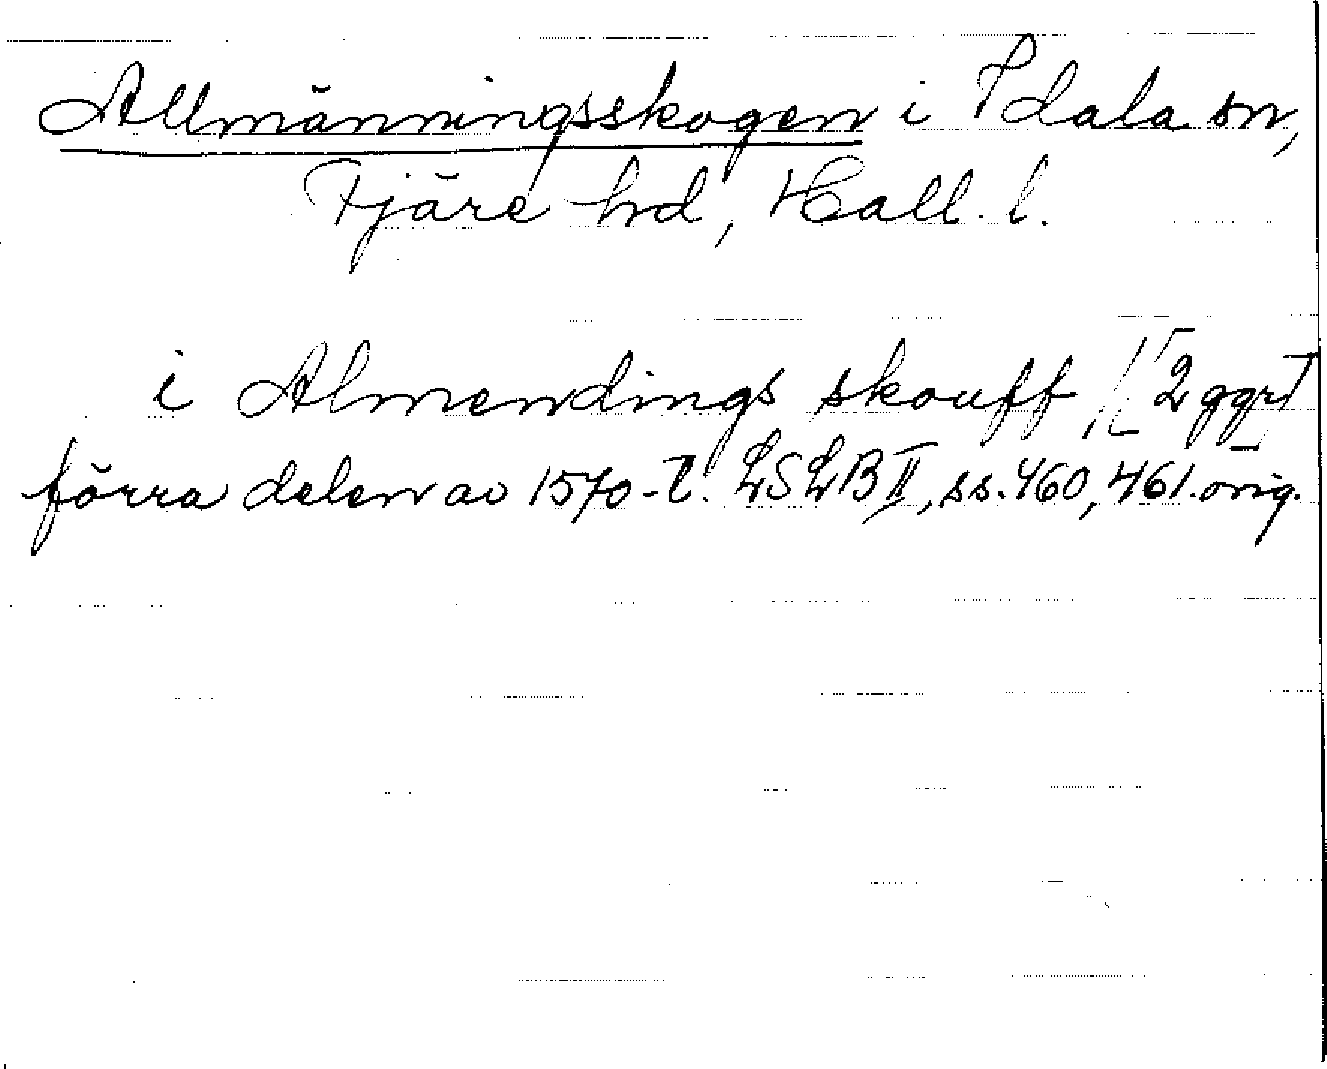 Allmänningsskogen i Idala sn,
Fjäre hd, Hall. l.
i Almendings skouff, // [2 ggr]
förra delen av 1570-t. LSLB II, ss. 460, 461. orig.